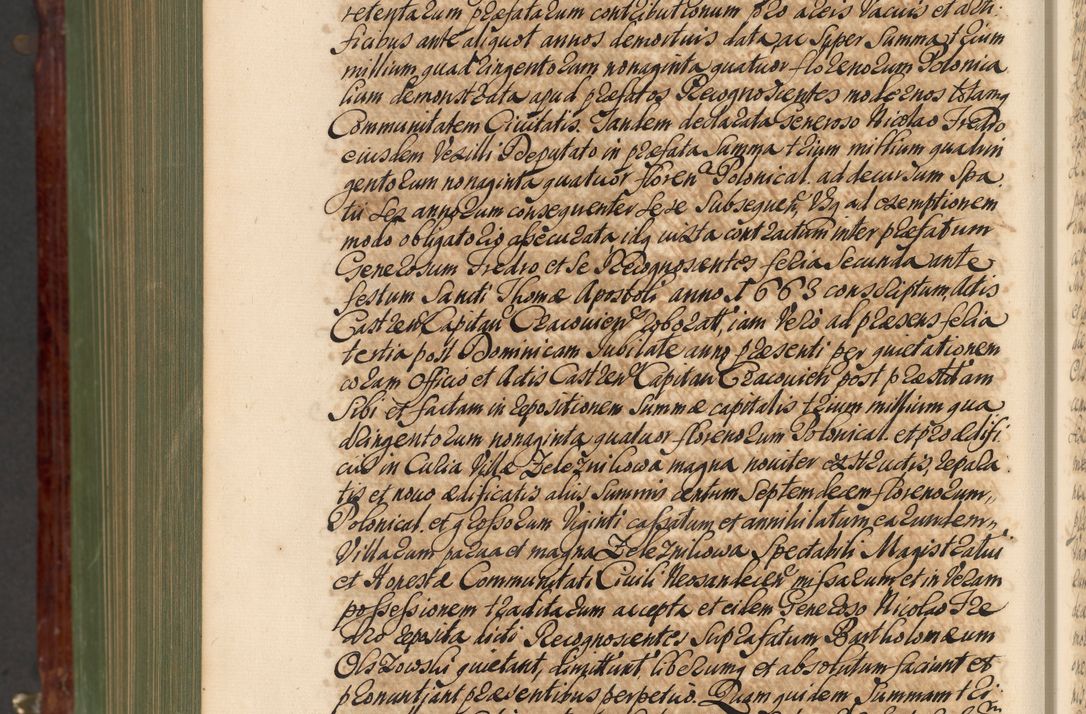 retentarum præfatarum contributionum pro areis vacuis et ædi¬
ficibus ante aliquot annos demortuis data ac super summa trium
millium quadringentorum nonaginta quatuor florenorum Polonica
lium demonstrata apud præfatos Recognoscentes modernos totamq
Communitatem Civitatis. Tandem declarata Generoso Nicolao Fredro
eiusdem Vexilli Deputato in præfata summa trium millium quadrin
gentorum nonaginta quatuor floren Polonical. ad decursum spa
tii sex annorum consequenter se se subsequen, usq ad exemptionem
modo obligatorio assecurata idq iuxta contractum inter præfatum
Generosum Fredro et se Recognoscentes feria secunda ante
festum Sancti Thomæ Apostoli anno 1663 conscriptum, Actis
Castren Capitan Cracovien roborat, iam verò ad præsens feria
tertia post Dominicam Jubilate anno præsenti per quietationem
coram Officio et Actis Castren Capitan Cracovien post præstitam
sibi et factam in repositionem summæ capitalis trium millium qua
dringentorum nonaginta quatuor florenorum Polonical. et pro ædifi
ciis in Curia Villæ Zelezniliowa magna noviter exstructis, repara
tis et novo ædificatis aliis summis centum septemdecem florenorum
Polonical. et grossorum viginti cassatum et annihilatum, earundem
Villarum parva et magna Zelezniliowa Spectabili Magistratui
et Honestæ Communitati Civili Neosandecen missarum et in veram
possessionem traditarum accepta et eidem Generoso Nicolao Fre
dro reposita dicti Recognoscentes suprafatum Bartholomæum
Olszowski quietant, dimittunt, liberumq et absolutum faciunt et
pronuntiant præsentibus perpetuò. Quam quidem summam tri